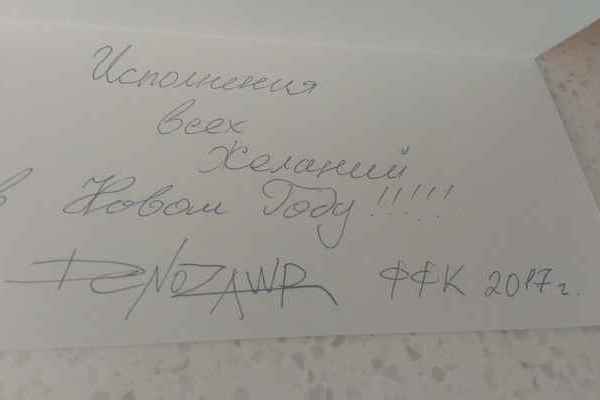 Исполнения
всех
Желаний
в Новом Году!!!!!
DENOZAWR ФФК 2017г.